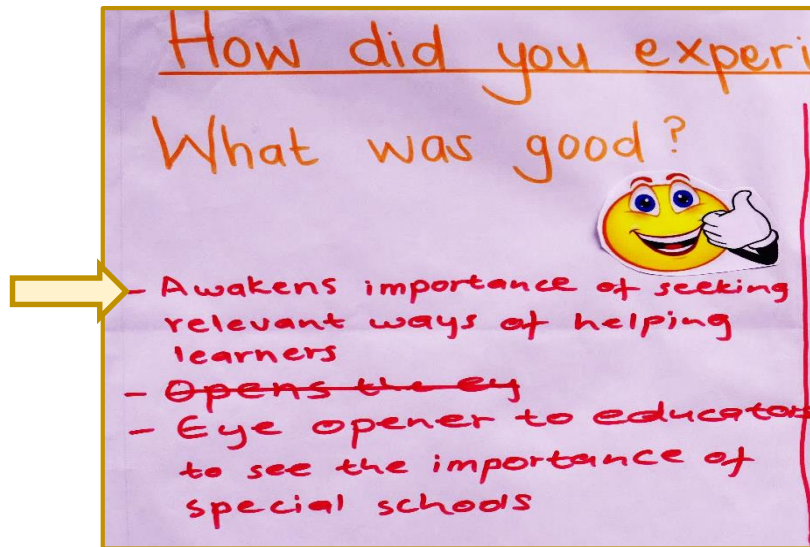 How did you experi
What was good?
- Awakens importance of seeking
relevant ways of helping
learners
- Opens the ey
- Eye opener to educators
to see the importance of
special schools